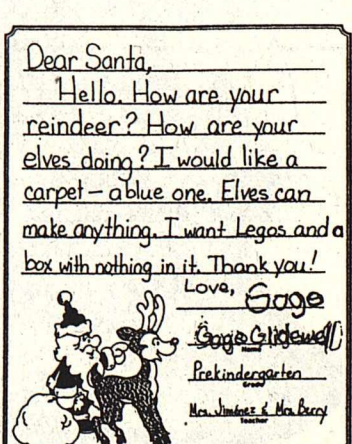 Dear Santa,
Hello. How are your
reindeer? How are your
elves doing? I would like a
carpet – a blue one. Elves can
make anything. I want Legos and a
box with nothing in it. Thank you!
Love, Gage
Gage Glidewell
Name
Prekindergarten
Grade
Mrs. Jiménez & Mrs. Berry
Teacher